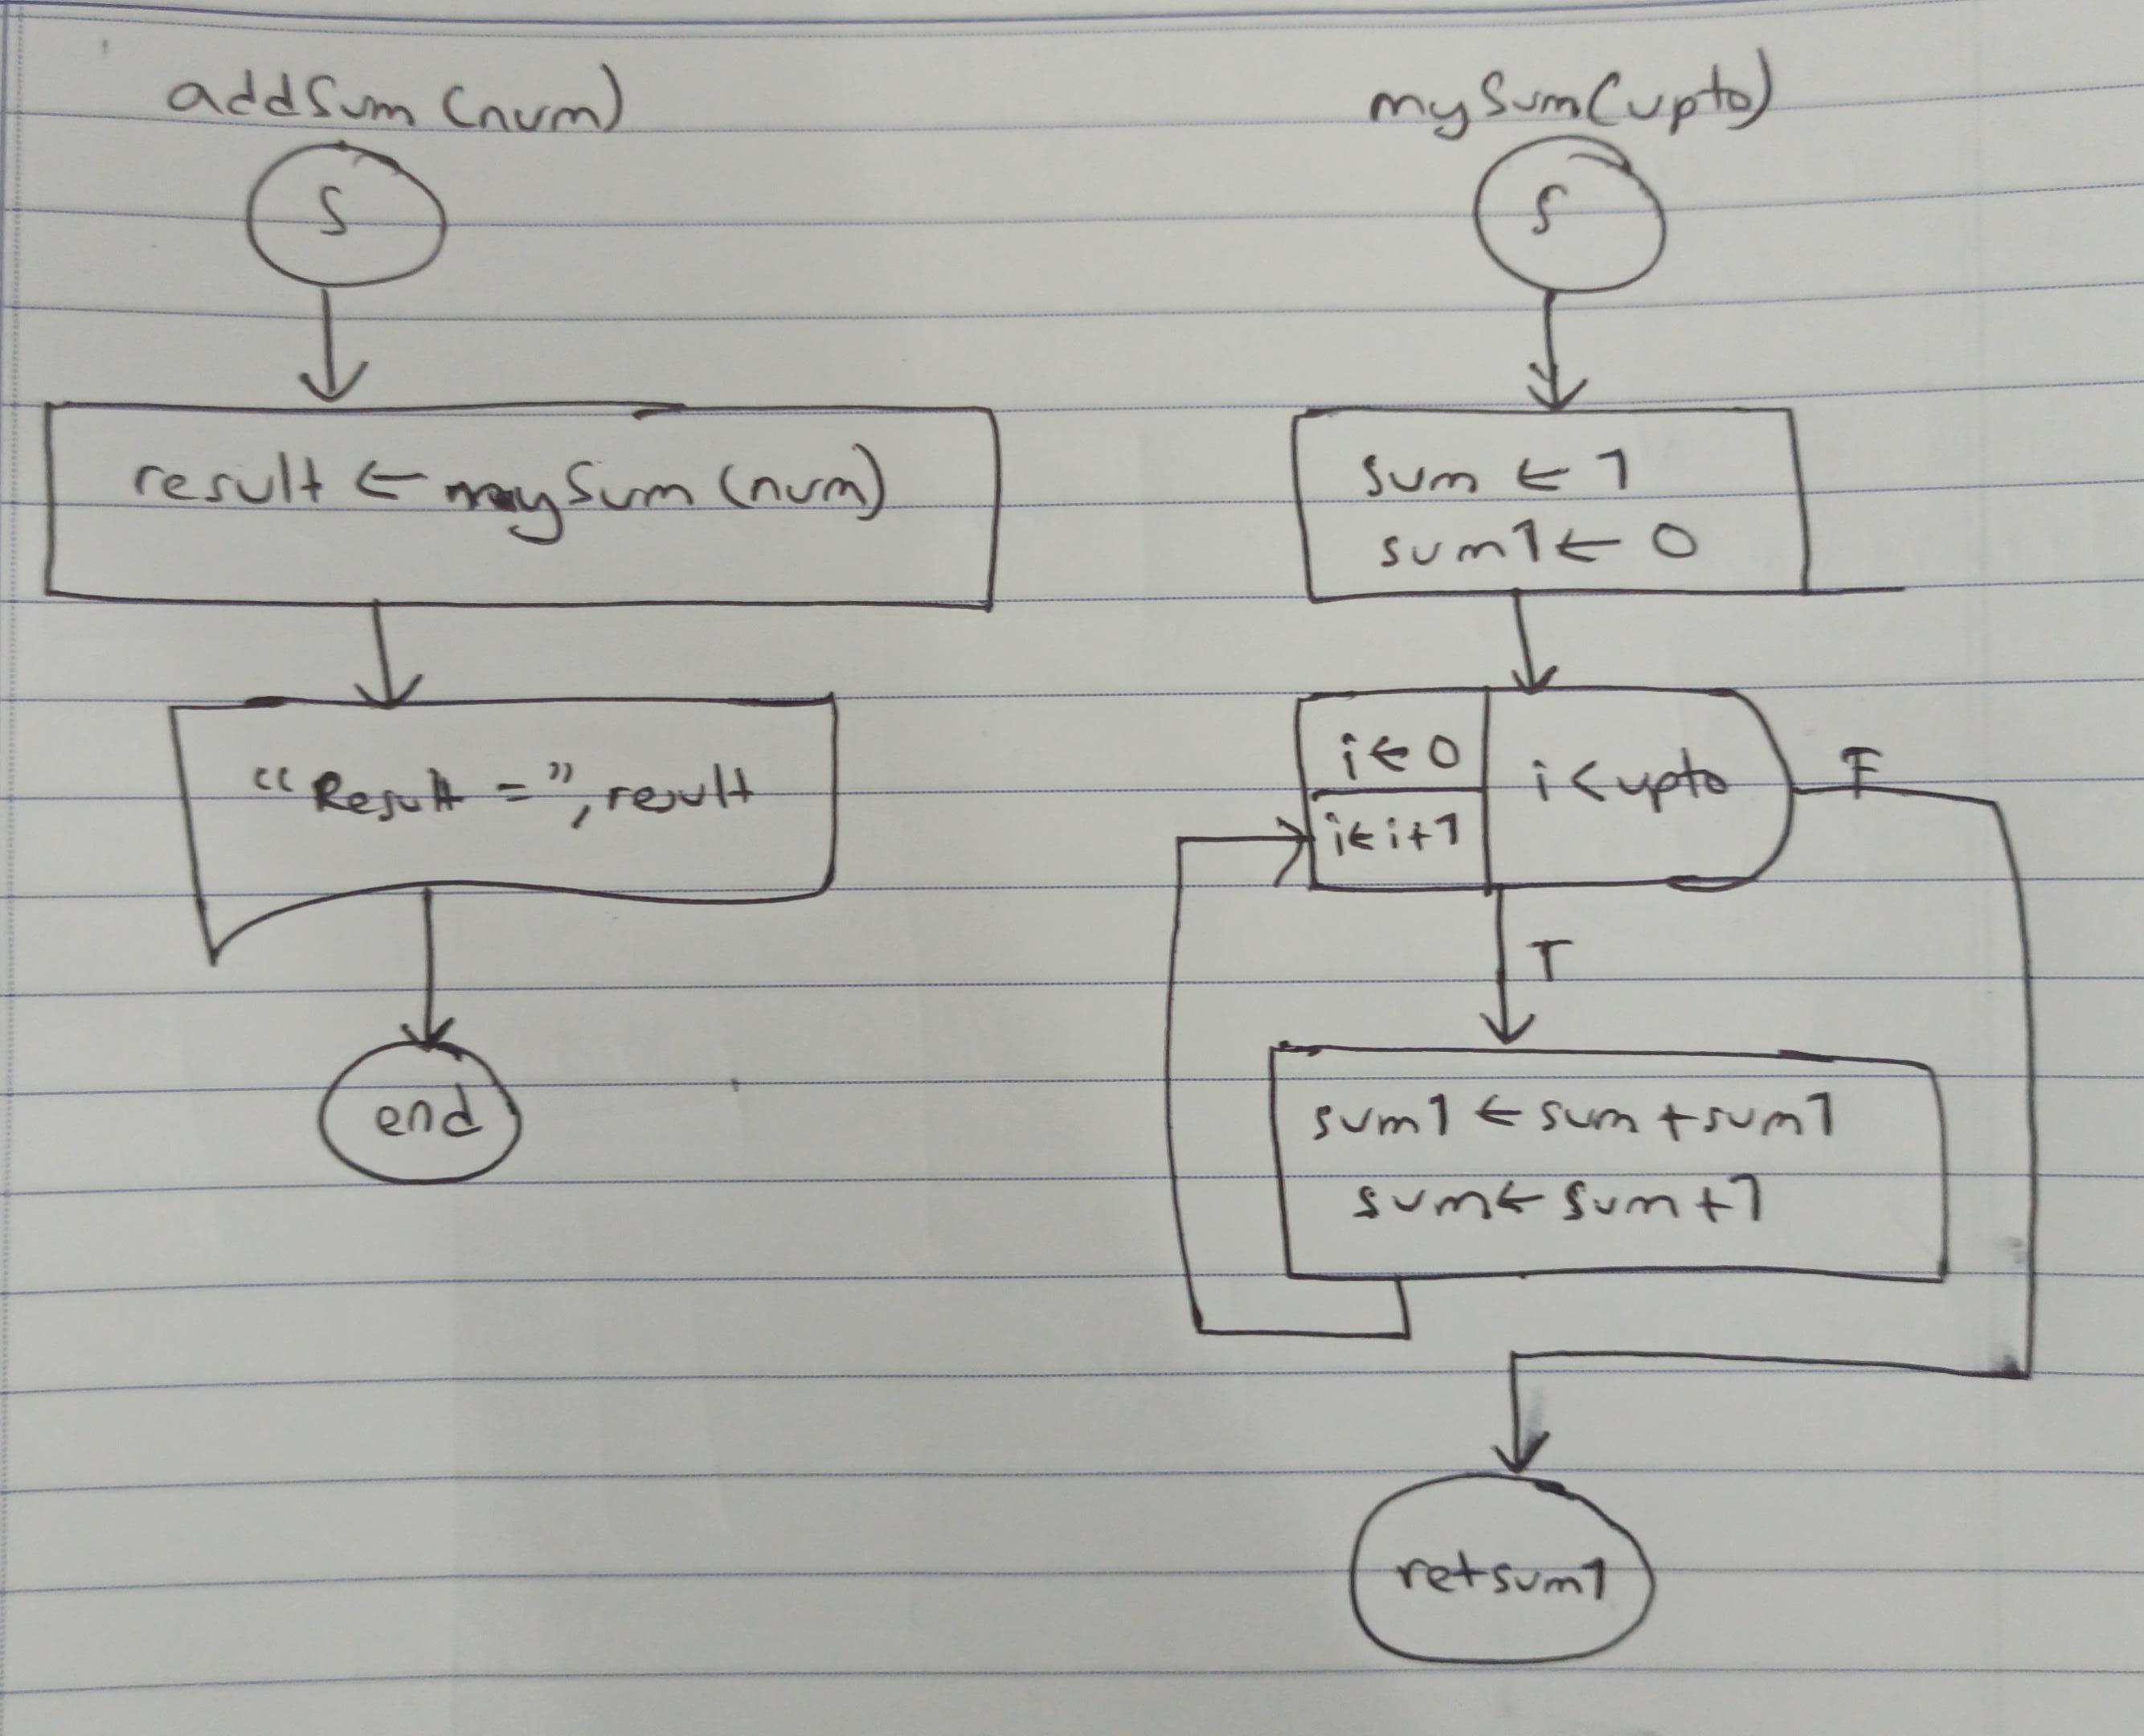 addSum (num)
S
result ← mySum (num)
"Result =", result
end
mySum(upto)
S
sum ← 1
sum1 ← 0
i ← 0
i < upto
F
i ← i+1
T
sum1 ← sum + sum1
sum ← sum + 1
ret sum1